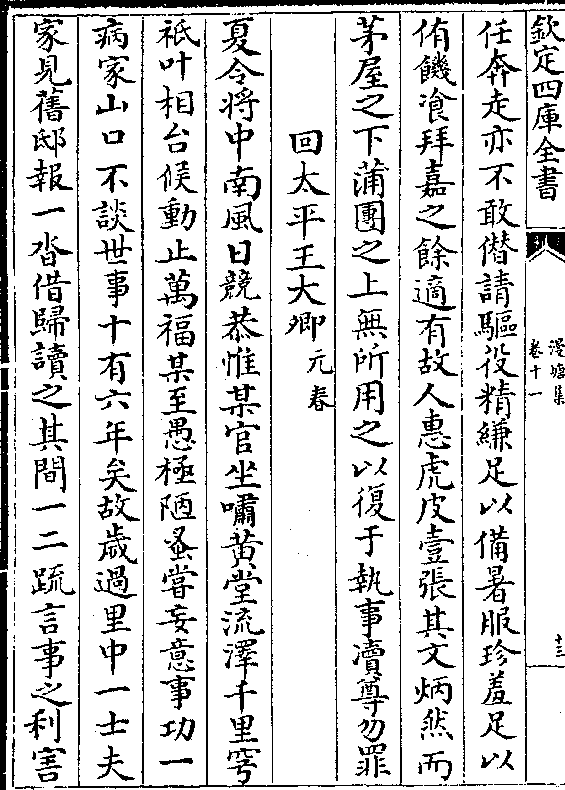 欽定四庫全書
漫塘集
卷十一
十三
任奔走亦不敢僭請驅役精縑足以備暑服珍羞足以
侑饑飡拜嘉之餘適有故人惠虎皮壹張其文炳然而
茅屋之下蒲團之上無所用之以復于執事瀆尊勿罪
回太平王大卿元春
夏令將中南風日競恭惟某官坐嘯黃堂流澤千里穹
祇叶相台候動止萬福某至愚極陋蚤嘗妄意事功一
病家山口不談世事十有六年矣故歲過里中一士夫
家見舊邸報一沓借歸讀之其間一二疏言事之利害